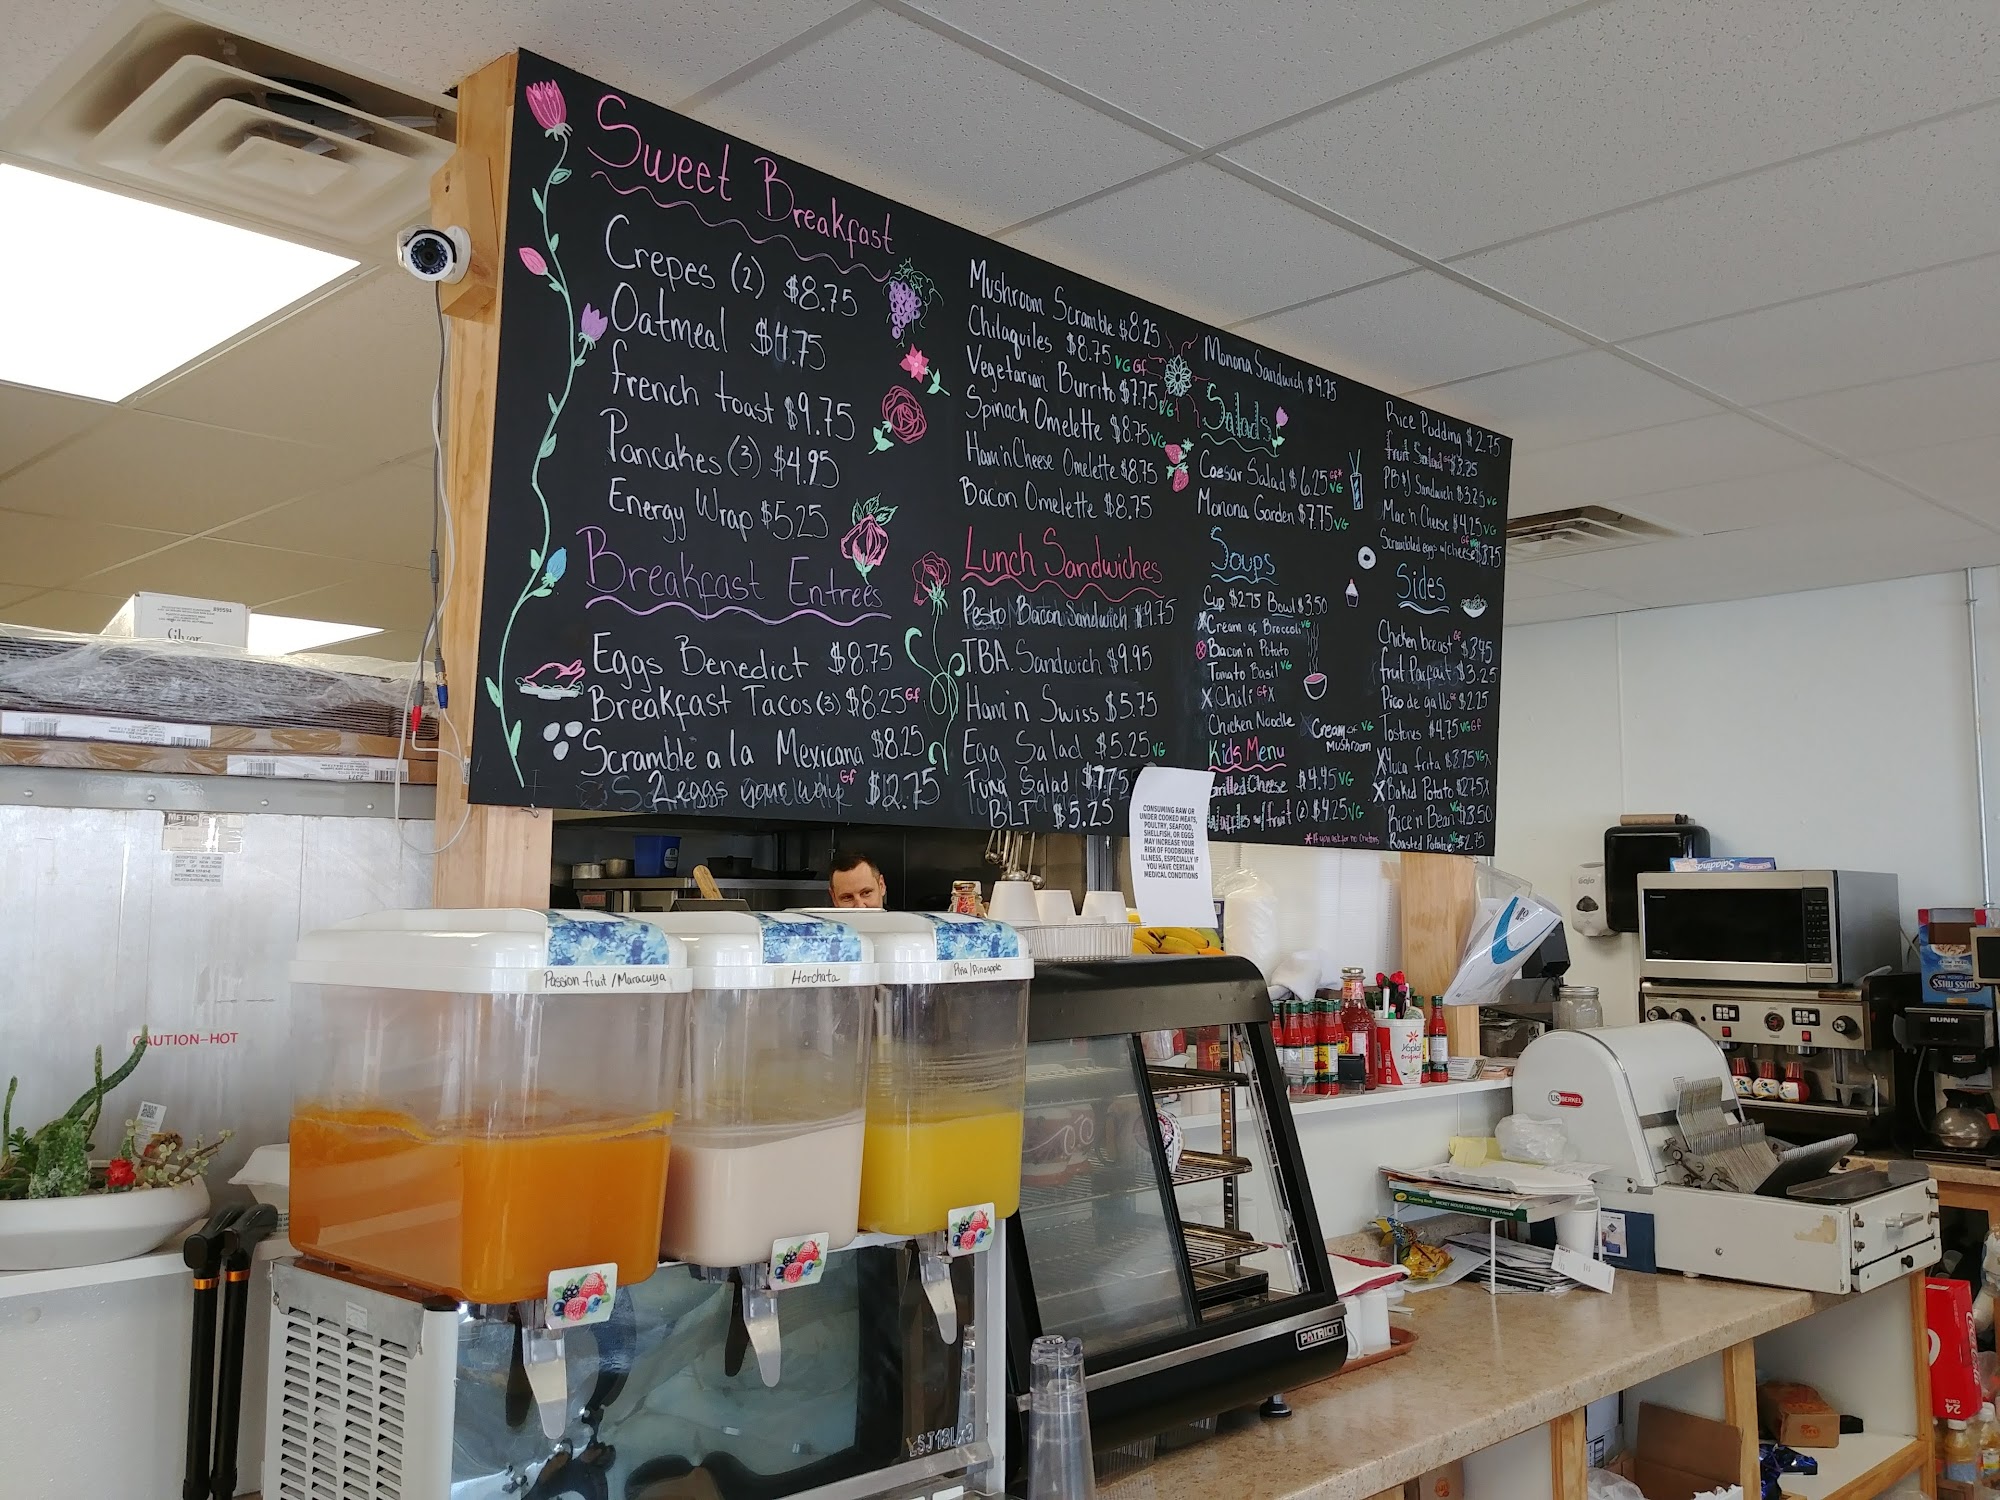 Sweet Breakfast
Crepes (2) $8.75
Oatmeal $4.75
french toast $9.75
Pancakes (3) $4.95
Energy Wrap $5.25
Breakfast Entrees
Eggs Benedict $8.75
Breakfast Tacos (3) $8.25 Gf
Scramble a la Mexicana $8.25
2 eggs your way Gf $12.75
Mushroom Scramble $8.25
Chilaquiles $8.75 VG Gf
Vegetarian Burrito $7.75 VG
Spinach Omelette $8.75 VG
Ham'n Cheese Omelette $8.75
Bacon Omelette $8.75
Lunch Sandwiches
Pesto Bacon Sandwich $9.75
T.B.A. Sandwich $9.95
Ham'n Swiss $5.75
Egg Salad $5.25 VG
Tuna Salad $7.75
BLT $5.25
Monona Sandwich $9.75
Salads
Caesar Salad $6.25 Gf* VG
Monona Garden $7.75 VG
Soups
Cup $2.75 Bowl $3.50
X Cream of Broccoli VG
X Bacon'n Potato
Tomato Basil VG
X Chili Gf X
Chicken Noodle
Cream of VG
Mushroom
Kids Menu
Grilled Cheese $4.45 VG
w/ fruit (2) $4.25 VG
* If you ask for no croutons
Rice Pudding $2.75
fruit Salad Gf $3.25
PB&J Sandwich $3.25 VG
Mac'n Cheese $4.25 VG
Scrambled eggs w/ cheese Gf $3.75
Sides
Chicken breast Gf $3.45
fruit Parfait $3.25
Pico de gallo $2.25
Tostones $4.75 VG Gf
X Yuca frita $3.75 VG X
X Baked Potato $2.75 X
Rice n Bean VG $3.50
Roasted Potatoes VG $2.75
CONSUMING RAW OR
UNDER COOKED MEATS,
POULTRY, SEAFOOD,
SHELLFISH, OR EGGS
MAY INCREASE YOUR
RISK OF FOODBORNE
ILLNESS, ESPECIALLY IF
YOU HAVE CERTAIN
MEDICAL CONDITIONS
Passion fruit / Maracuya
Horchata
Piña / Pineapple
CAUTION-HOT
METRO
PATRIOT
US BERKEL
Yoplait
Original
BUNN
SWISS MISS
gojo
24